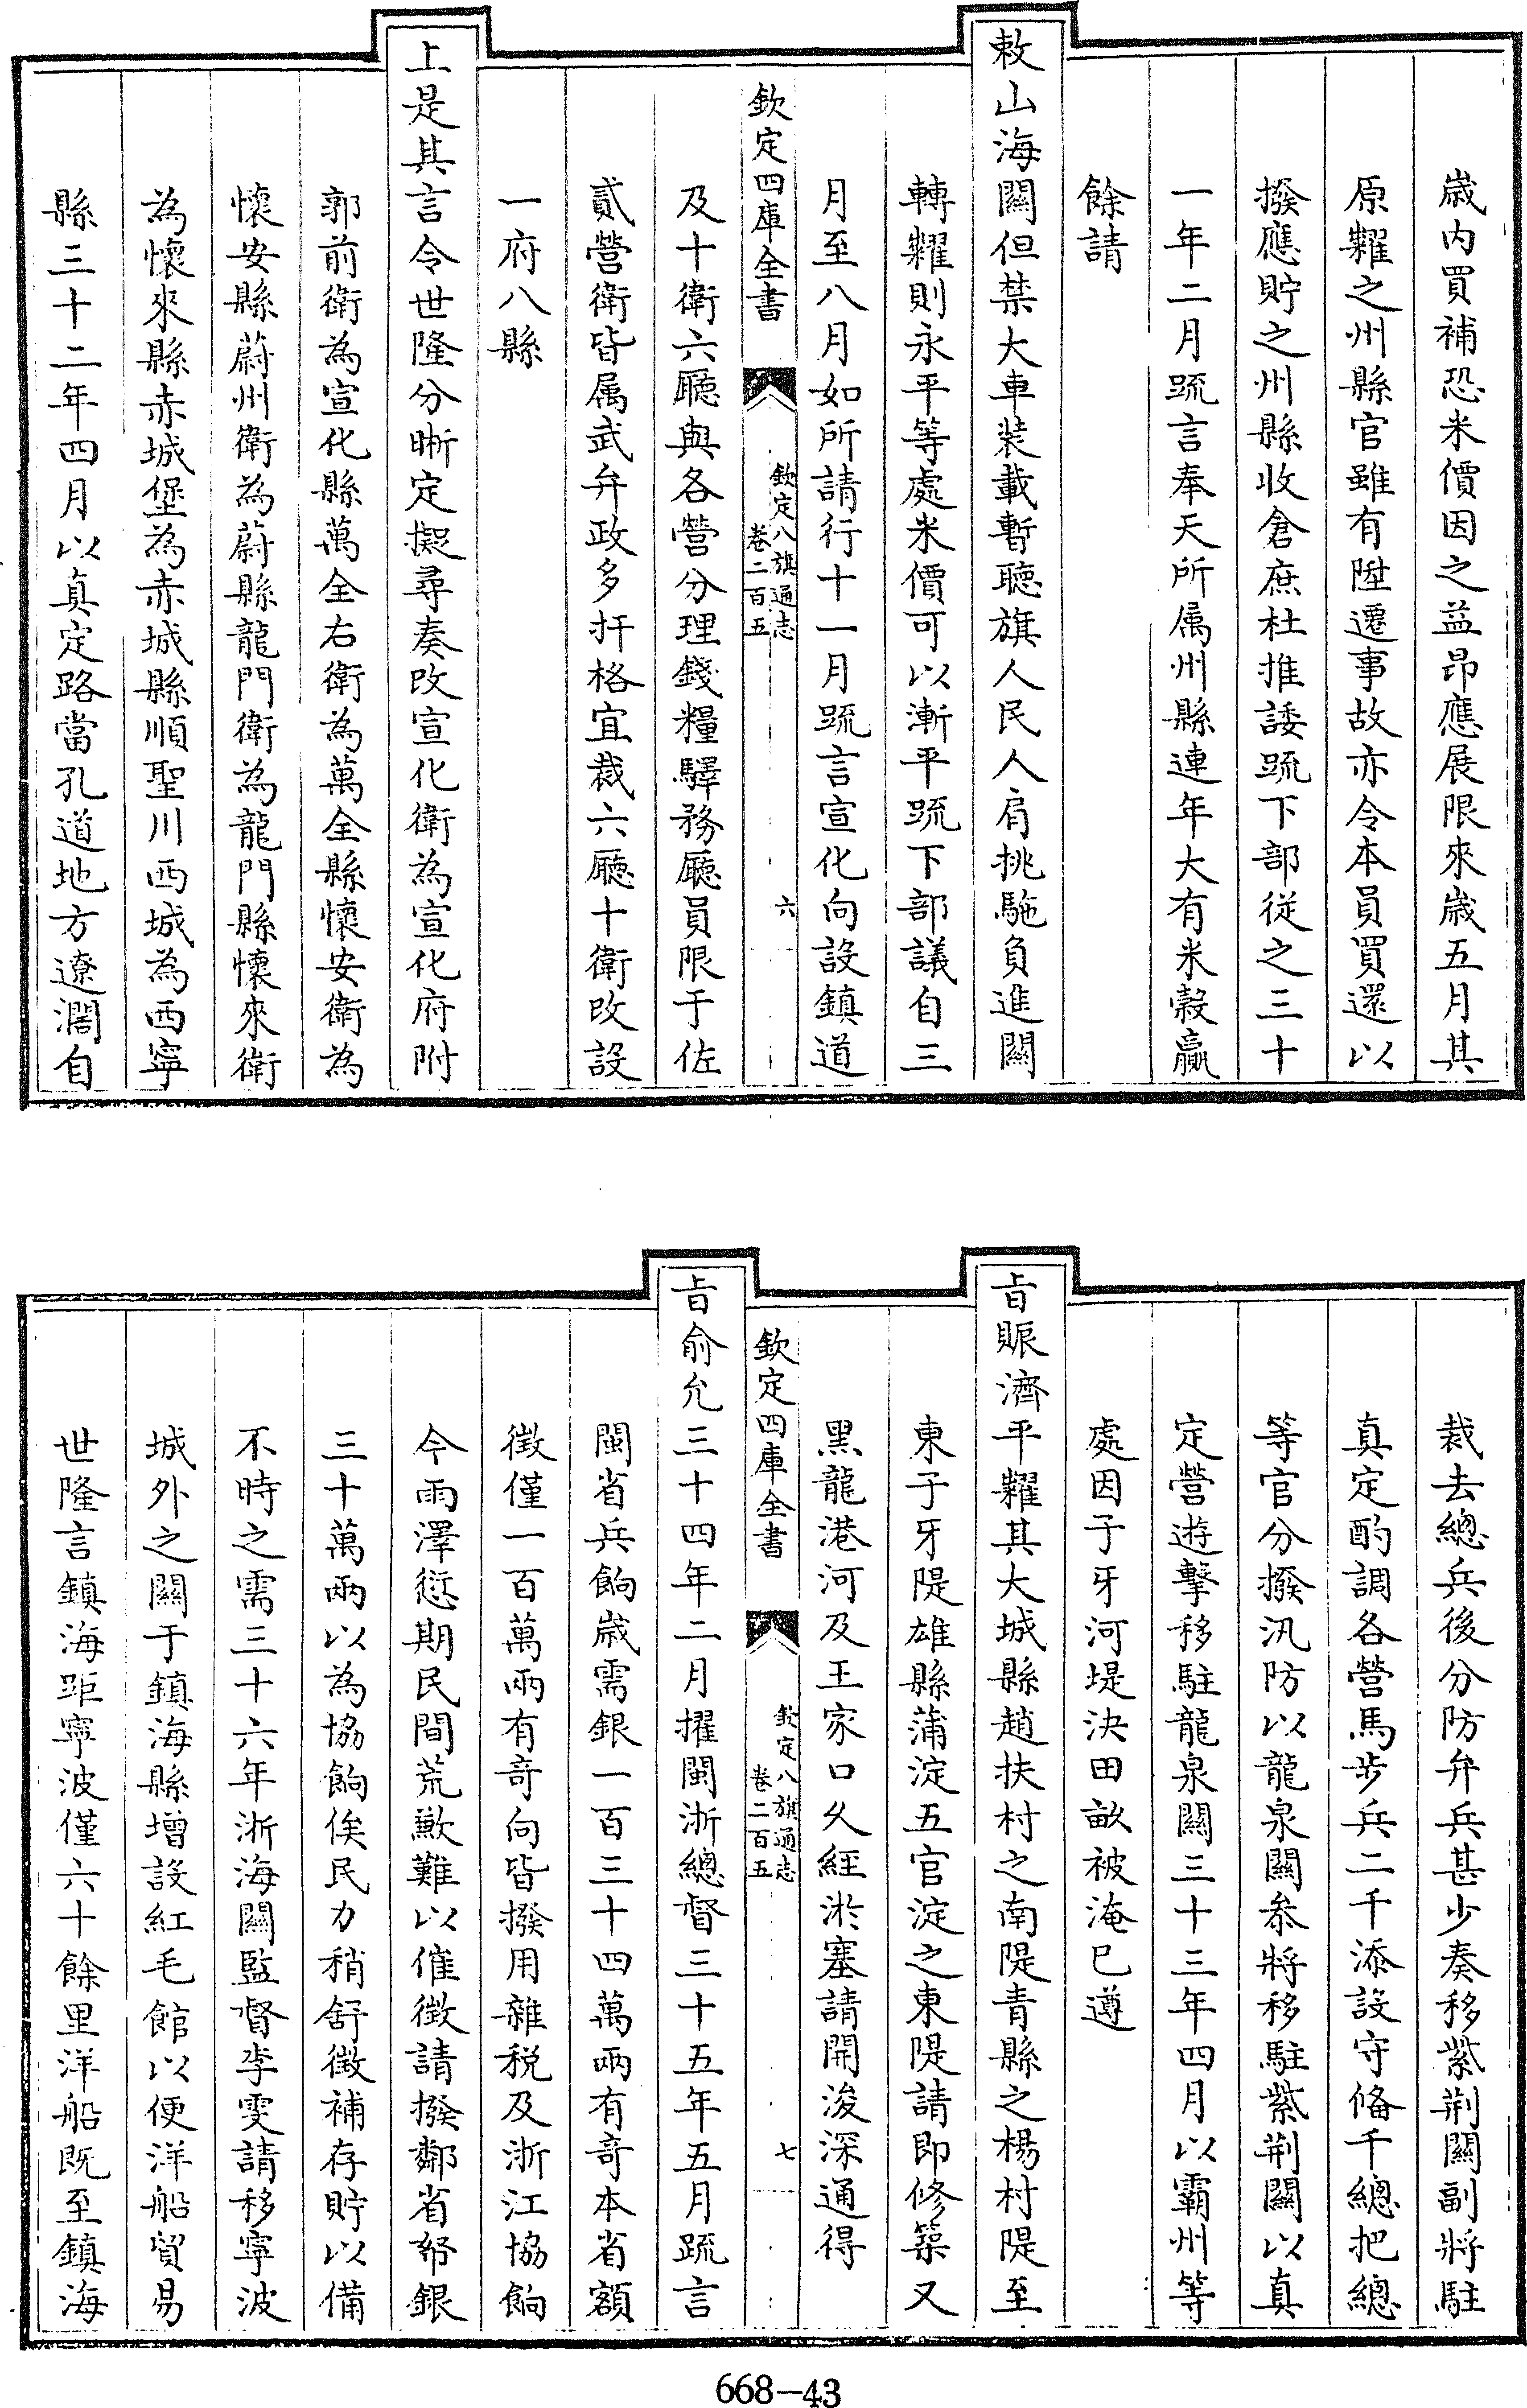 歳内買補恐米價因之益昻應展限來歳五月其
原糶之州縣官雖有陞遷事故亦令本員買還以
撥應貯之州縣收倉庶杜推諉疏下部從之三十
一年二月疏言奉天所属州縣連年大有米穀贏
餘請
敕山海關但禁大車装載暫聴旗人民人肩挑駞負進關
轉糶則永平等處米價可以漸平疏下部議自三
月至八月如所請行十一月疏言宣化向設鎮道
欽定四庫全書
欽定八旗通志
卷二百五
六
及十衛六廳與各營分理錢糧驛務廳員限于佐
貳營衛皆属武弁政多扞格宜裁六廳十衛改設
一府八縣
上是其言令世隆分晰定擬尋奏改宣化衛為宣化府附
郭前衛為宣化縣萬全右衛為萬全縣懷安衛為
懷安縣蔚州衛為蔚縣龍門衛為龍門縣懷來衛
為懷來縣赤城堡為赤城縣順聖川西城為西寧
縣三十二年四月以真定路當孔道地方遼濶自
裁去總兵後分防弁兵甚少奏移紫荆關副將駐
真定酌調各營馬步兵二千添設守備千總把總
等官分撥汛防以龍泉關叅將移駐紫荆關以真
定營遊擊移駐龍泉關三十三年四月以霸州等
處因子牙河堤決田畝被淹已遵
㫖賑濟平糶其大城縣趙扶村之南隄青縣之楊村隄至
東子牙隄雄縣蒲淀五官淀之東隄請即修築又
黑龍港河及王家口久經淤塞請開浚深通得
欽定四庫全書
欽定八旗通志
卷二百五
七
㫖俞允三十四年二月擢閩浙總督三十五年五月疏言
閩省兵餉歳需銀一百三十四萬兩有竒本省額
徵僅一百萬兩有竒向皆撥用雜税及浙江協餉
今雨澤愆期民間荒歉難以催徵請撥鄰省帑銀
三十萬兩以為協餉俟民力稍舒徵補存貯以備
不時之需三十六年浙海關監督李雯請移寧波
城外之關于鎮海縣增設紅毛館以便洋船貿易
世隆言鎮海距寧波僅六十餘里洋船既至鎮海
668-43